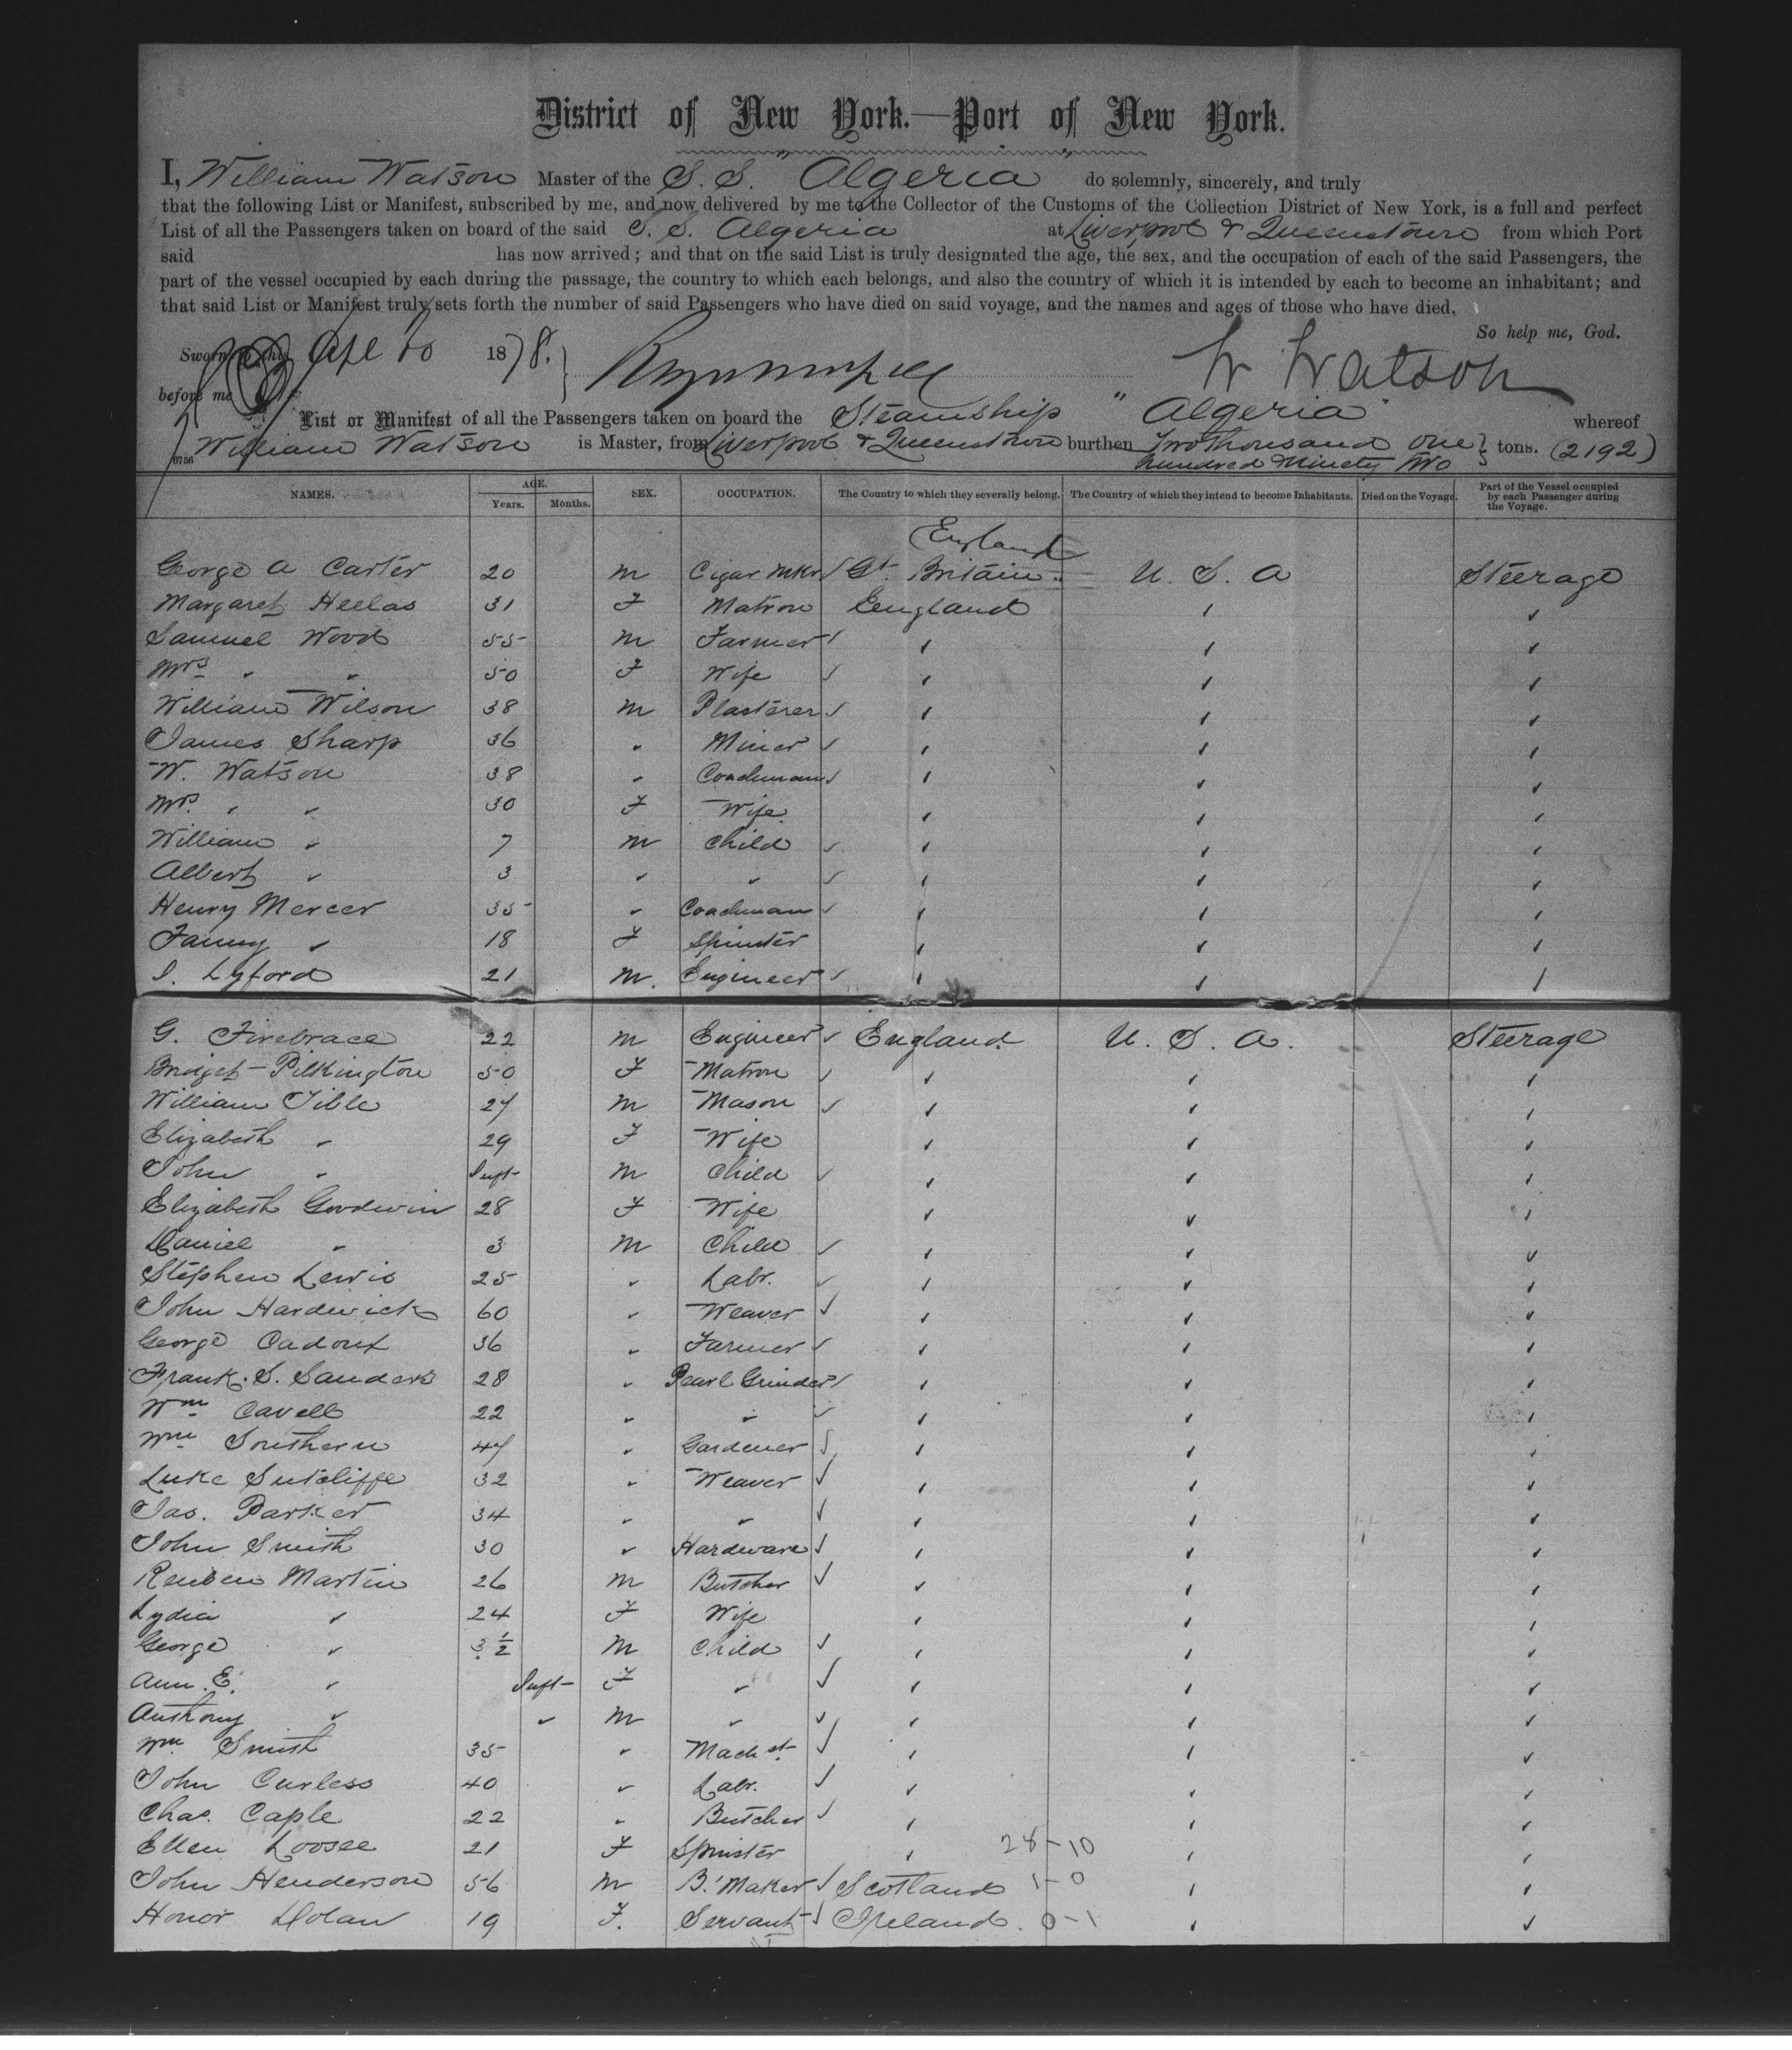 District of New York.—Port of New York.
I, William Watson Master of the S. S. Algeria do solemnly, sincerely, and truly
that the following List or Manifest, subscribed by me, and now delivered by me to the Collector of the Customs of the Collection District of New York, is a full and perfect
List of all the Passengers taken on board of the said S. S. Algeria at Liverpool & Queenstown from which Port
said has now arrived; and that on the said List is truly designated the age, the sex, and the occupation of each of the said Passengers, the
part of the vessel occupied by each during the passage, the country to which each belongs, and also the country of which it is intended by each to become an inhabitant; and
that said List or Manifest truly sets forth the number of said Passengers who have died on said voyage, and the names and ages of those who have died.
So help me, God.
Sworn to this Apl 10 1878.
before me W Watson
List or Manifest of all the Passengers taken on board the Steamship "Algeria" whereof
William Watson is Master, from Liverpool & Queenstown burthen Two thousand one hundred & Ninety two tons. (2192)
6756
NAMES. AGE. Years. Months. SEX. OCCUPATION. The Country to which they severally belong. The Country of which they intend to become Inhabitants. Died on the Voyage. Part of the Vessel occupied by each Passenger during the Voyage.
England
George A Carter 20 m Cigar Mkr Gt. Britain U. S. A Steerage
Margaret Heelas 31 F Matron England
Samuel Wood 55 m Farmer
Mrs " " 50 F Wife
William Wilson 38 m Plasterer
James Sharp 36 " Miner
W. Watson 38 " Coachman
Mrs. " " 30 F Wife
William " 7 m Child
Albert " 3 " "
Henry Mercer 35 " Coachman
Fanny " 18 F Spinster
I. Lyford 21 m. Engineer
G. Firebrace 22 m Engineer England U. S. A. Steerage
Bridget Pilkington 50 F Matron
William Tible 27 m Mason
Elizabeth " 29 F Wife
John " Inft m Child
Elizabeth Goodwin 28 F Wife
Daniel " 3 m Child
Stephen Lewis 25 " Labr.
John Hardwick 60 " Weaver
George Cadoux 36 " Farmer
Frank. S. Sanders 28 " Pearl Grinder
Wm Cavell 22 " "
Wm Southern 47 " Gardener
Luke Sutcliffe 32 " Weaver
Jas. Parker 34 " "
John Smith 30 " Hardware
Reuben Martin 26 m Butcher
Lydia " 24 F Wife
George " 3 1/2 m Child
Ann. E. " Inft F "
Anthony " " m "
Wm Smith 35 " Machst
John Curless 40 " Labr.
Chas. Caple 22 " Butcher
Ellen Loosee 21 F Spinster 28-10
John Henderson 56 m B. Maker Scotland 1-0
Honor Dolan 19 F. Servant Ireland. 0-1